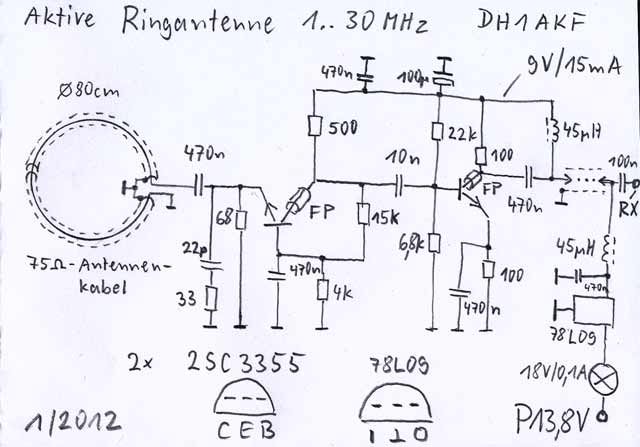 Aktive Ringantenne 1..30MHz DH1AKF
470n
100µ
9V/15mA
Ø80cm
500
22k
100
45µH
470n
10n
FP
470n
100n
RX
68
FP
15k
22p
33
470n
4k
6,8k
470n
100
45µH
470n
78L09
75Ω-Antennen-
kabel
2x 2SC3355
78L09
18V/0,1A
C E B
I ⊥ O
P13,8V
1/2012